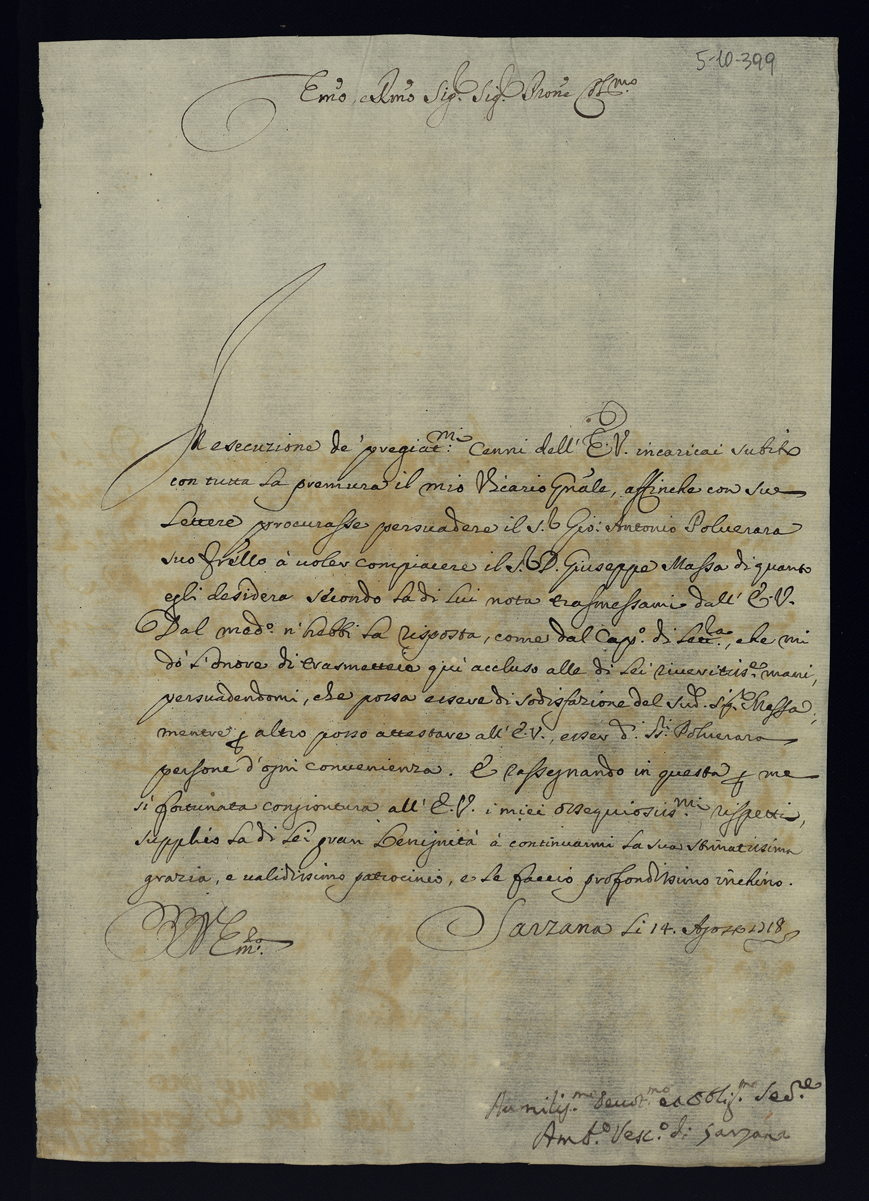 5-10-399
Em̃o, e Rm̃o Sig.r Sig.r Prone Col.mo
In esecuzione de' pregiat.mi Cenni dell' E. V. incaricai subito
con tutta la premura il mio Vicario Gñale, affinche con sue
Lettere procurasse persuadere il S.r Gio: Antonio Poluerara
suo fr̃ello à uoler compiacere il S.r D. Giuseppe Massa di quanto
egli desidera secondo la di lui nota trasmessami dall' E. V.
Dal med.o n' hebbi la risposta, come dal Cap.o di Lett.ra, che mi
dò l'onore di trasmettere quì accluso alle di Lei riueritiss.e mani,
persuadendomi, che possa essere di sodisfazione del sud.o Sig.r Massa,
mentre p altro posso attestare all' E. V., esser d.i SS.ri Poluerara
persone d'ogni conuenienza. E rassegnando in questa p me
sì fortunata congiontura all' E. V. i miei ossequiosiss.mi rispetti,
supplico la di Lei gran Benignità à continuarmi la sua stimatissima
grazia, e ualidissimo patrocinio, e le faccio profondissimo inchino.
Sarzana li 14. Agosto 1718
Em.o
Aumilis.mo Deuot.mo ed Oblig.mo Ser.re
Amb.o Vesc.o di Sarzana